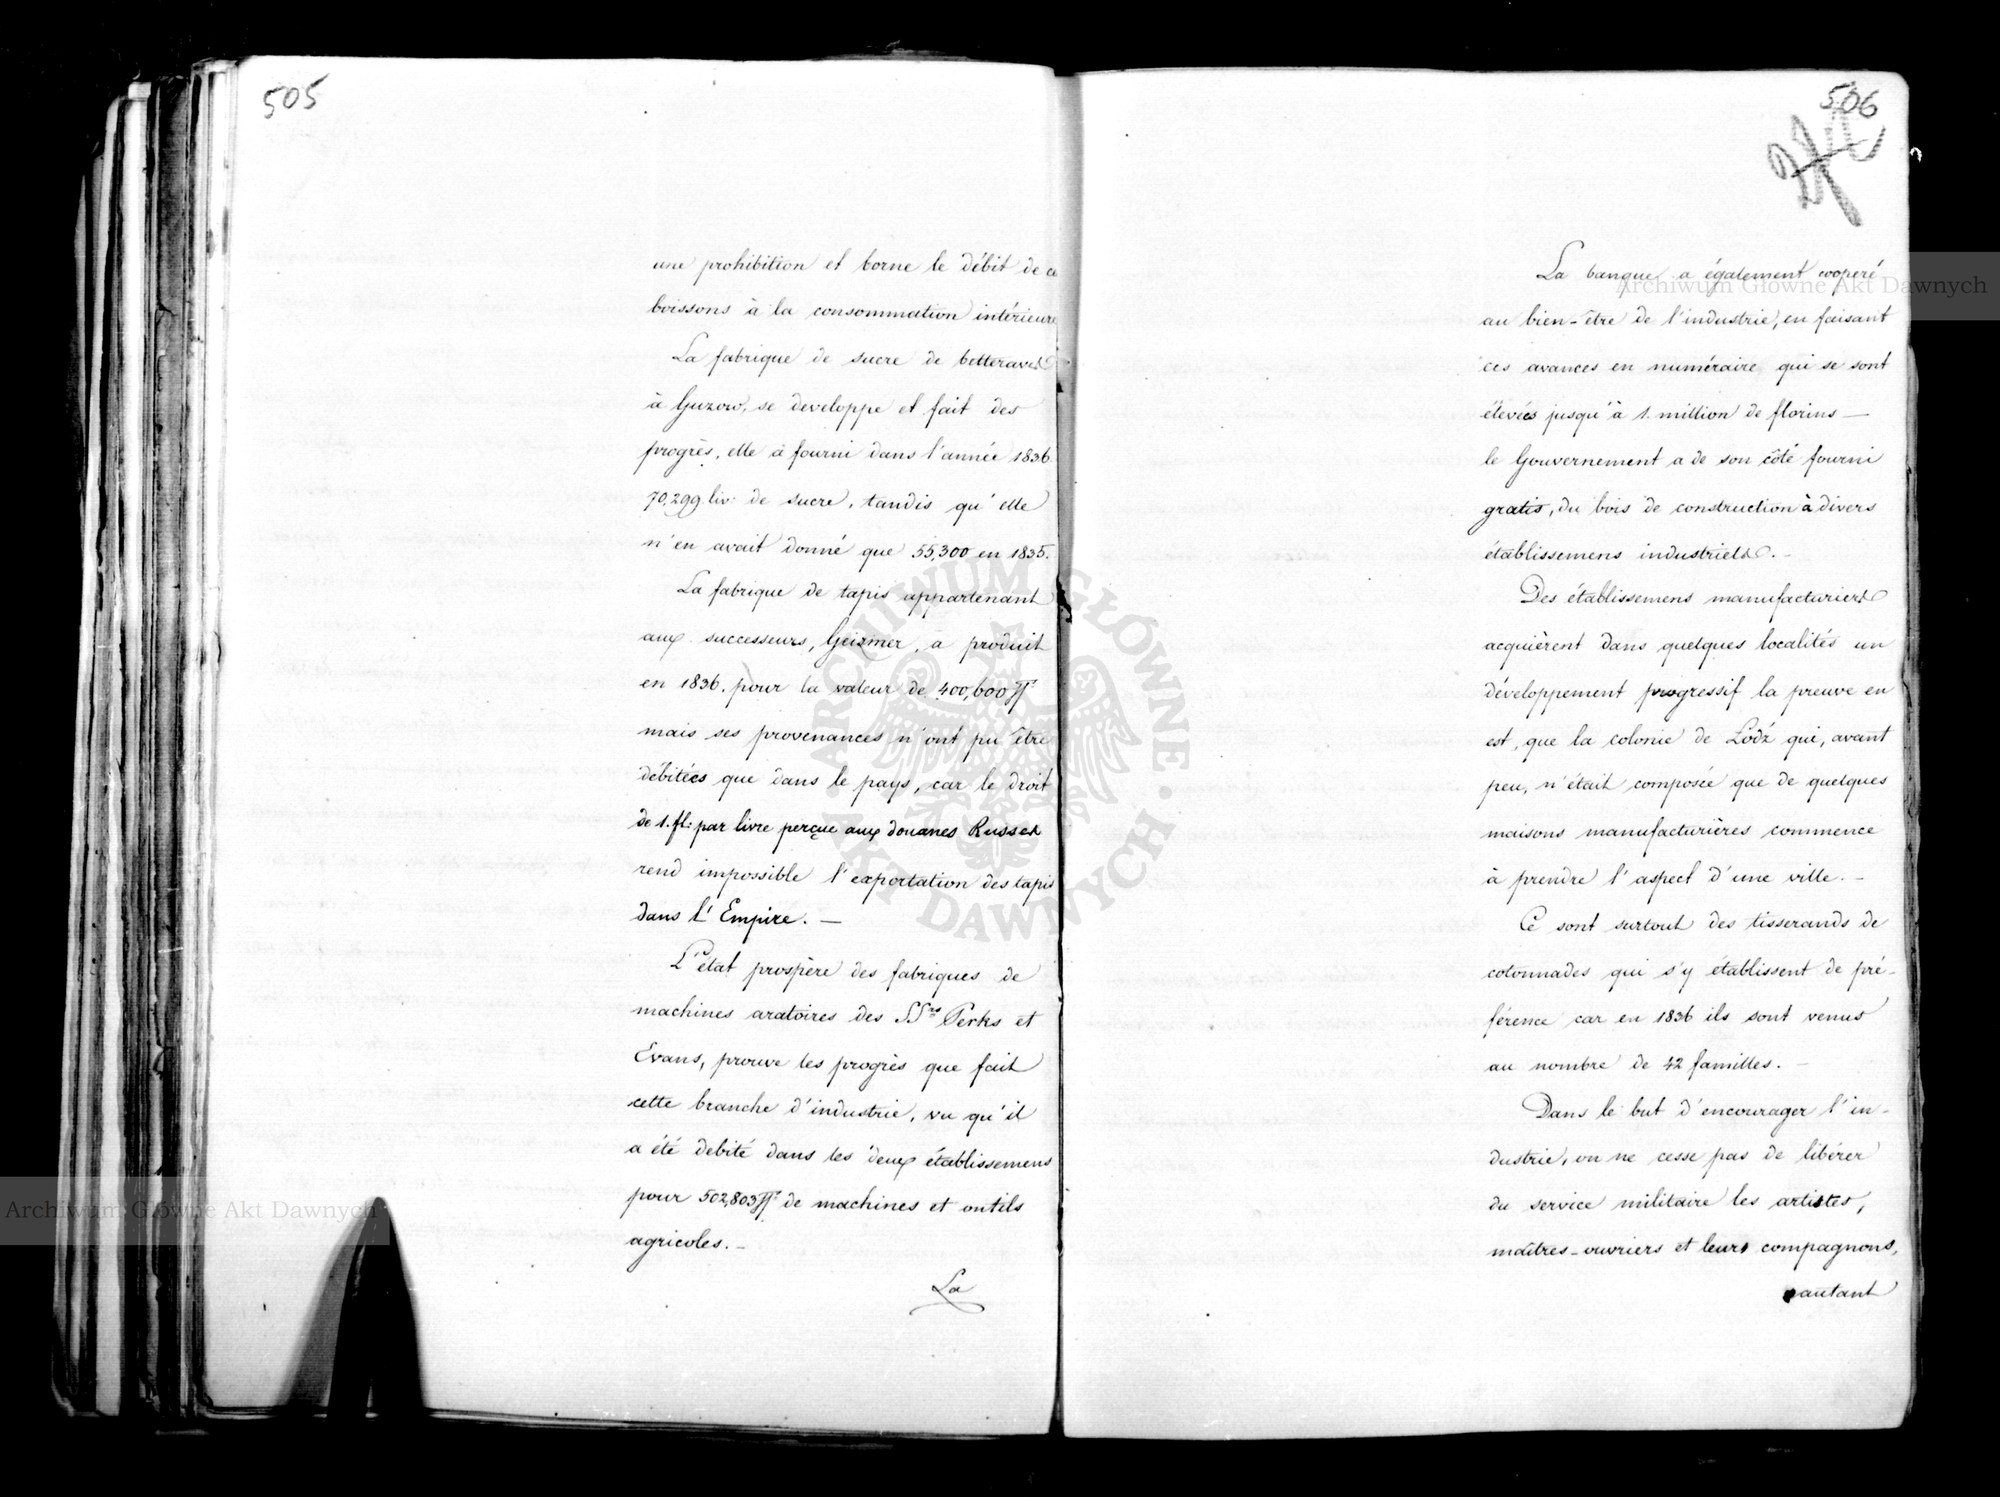 505
une prohibition et borne le débit de ce
boissons à la consommation intérieure
La fabrique de sucre de betteraves
à Guzow, se developpe et fait des
progrès, elle à fourni dans l'année 1836
70,299 liv: de sucre, tandis qu'elle
n'en avait donné que 55,300 en 1835.
La fabrique de tapis appartenant
aux successeurs, Geismer, a produit
en 1836. pour la valeur de 400,600 ff
mais ses provenances n'ont pu être
débitées que dans le pays, car le droit
de 1. fl: par livre perçue aux douanes Russes
rend impossible l'exportation des tapis
dans l'Empire. —
L'état prospère des fabriques de
machines aratoires des SSrs Perks et
Evans, prouve les progrès que fait
cette branche d'industrie, vu qu'il
a été debité dans les deux établissemens
pour 502,803 ff de machines et outils
agricoles. —
La
506
La banque a également cooperé
au bien-être de l'industrie, en faisant
ces avances en numéraire qui se sont
élevées jusqu'à 1. million de florins —
le Gouvernement a de son côté fourni
gratis, du bois de construction à divers
établissemens industriels. —
Des établissemens manufacturiers
acquièrent dans quelques localités un
développement progressif la preuve en
est, que la colonie de Łódź qui, avant
peu, n'était composée que de quelques
maisons manufacturières commence
à prendre l'aspect d'une ville. —
Ce sont surtout des tisserands de
cotonnades qui s'y établissent de pré-
férence car en 1836 ils sont venus
au nombre de 42 familles. —
Dans le but d'encourager l'in-
dustrie, on ne cesse pas de libérer
du service militaire les artistes,
maîtres-ouvriers et leurs compagnons,
autant
Archiwum Główne Akt Dawnych
Archiwum Główne Akt Dawnych
ARCHIWUM GŁÓWNE AKT DAWNYCH